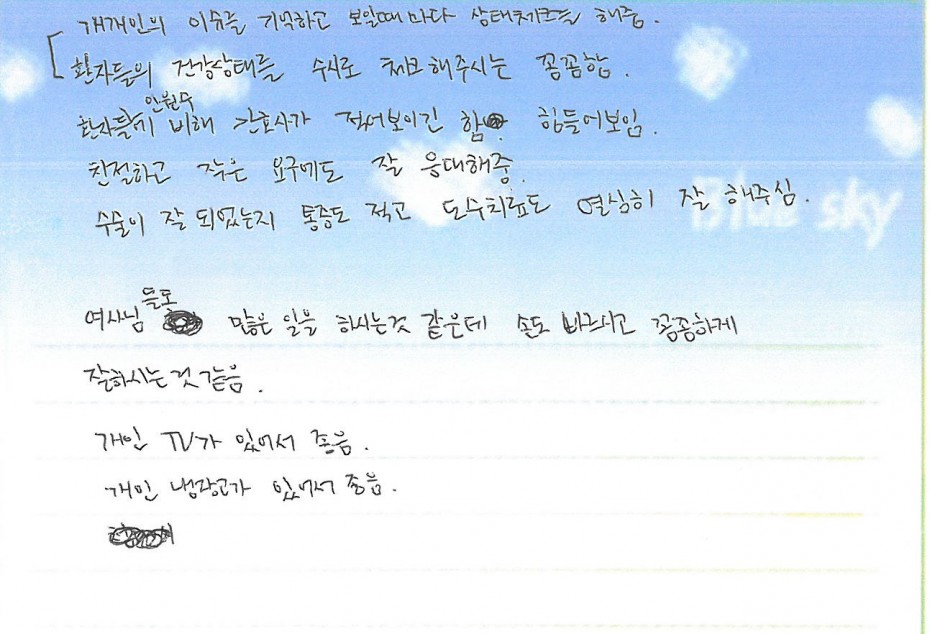 개개인의 이슈를 기억하고 보일때마다 상태체크를 해줌.
환자들의 건강상태를 수시로 체크해주시는 꼼꼼함.
환자들에 인원수 비해 간호사가 적어보이긴 함. 힘들어보임.
친절하고 작은 요구에도 잘 응대해줌.
수술이 잘 되었는지 통증도 적고 도수치료도 열심히 잘 해주심.
Blue sky
여사님들도 많은 일을 하시는것 같은데 손도 빠르시고 꼼꼼하게
잘하시는것 같음.
개인 TV가 있어서 좋음.
개인 냉장고가 있어서 좋음.